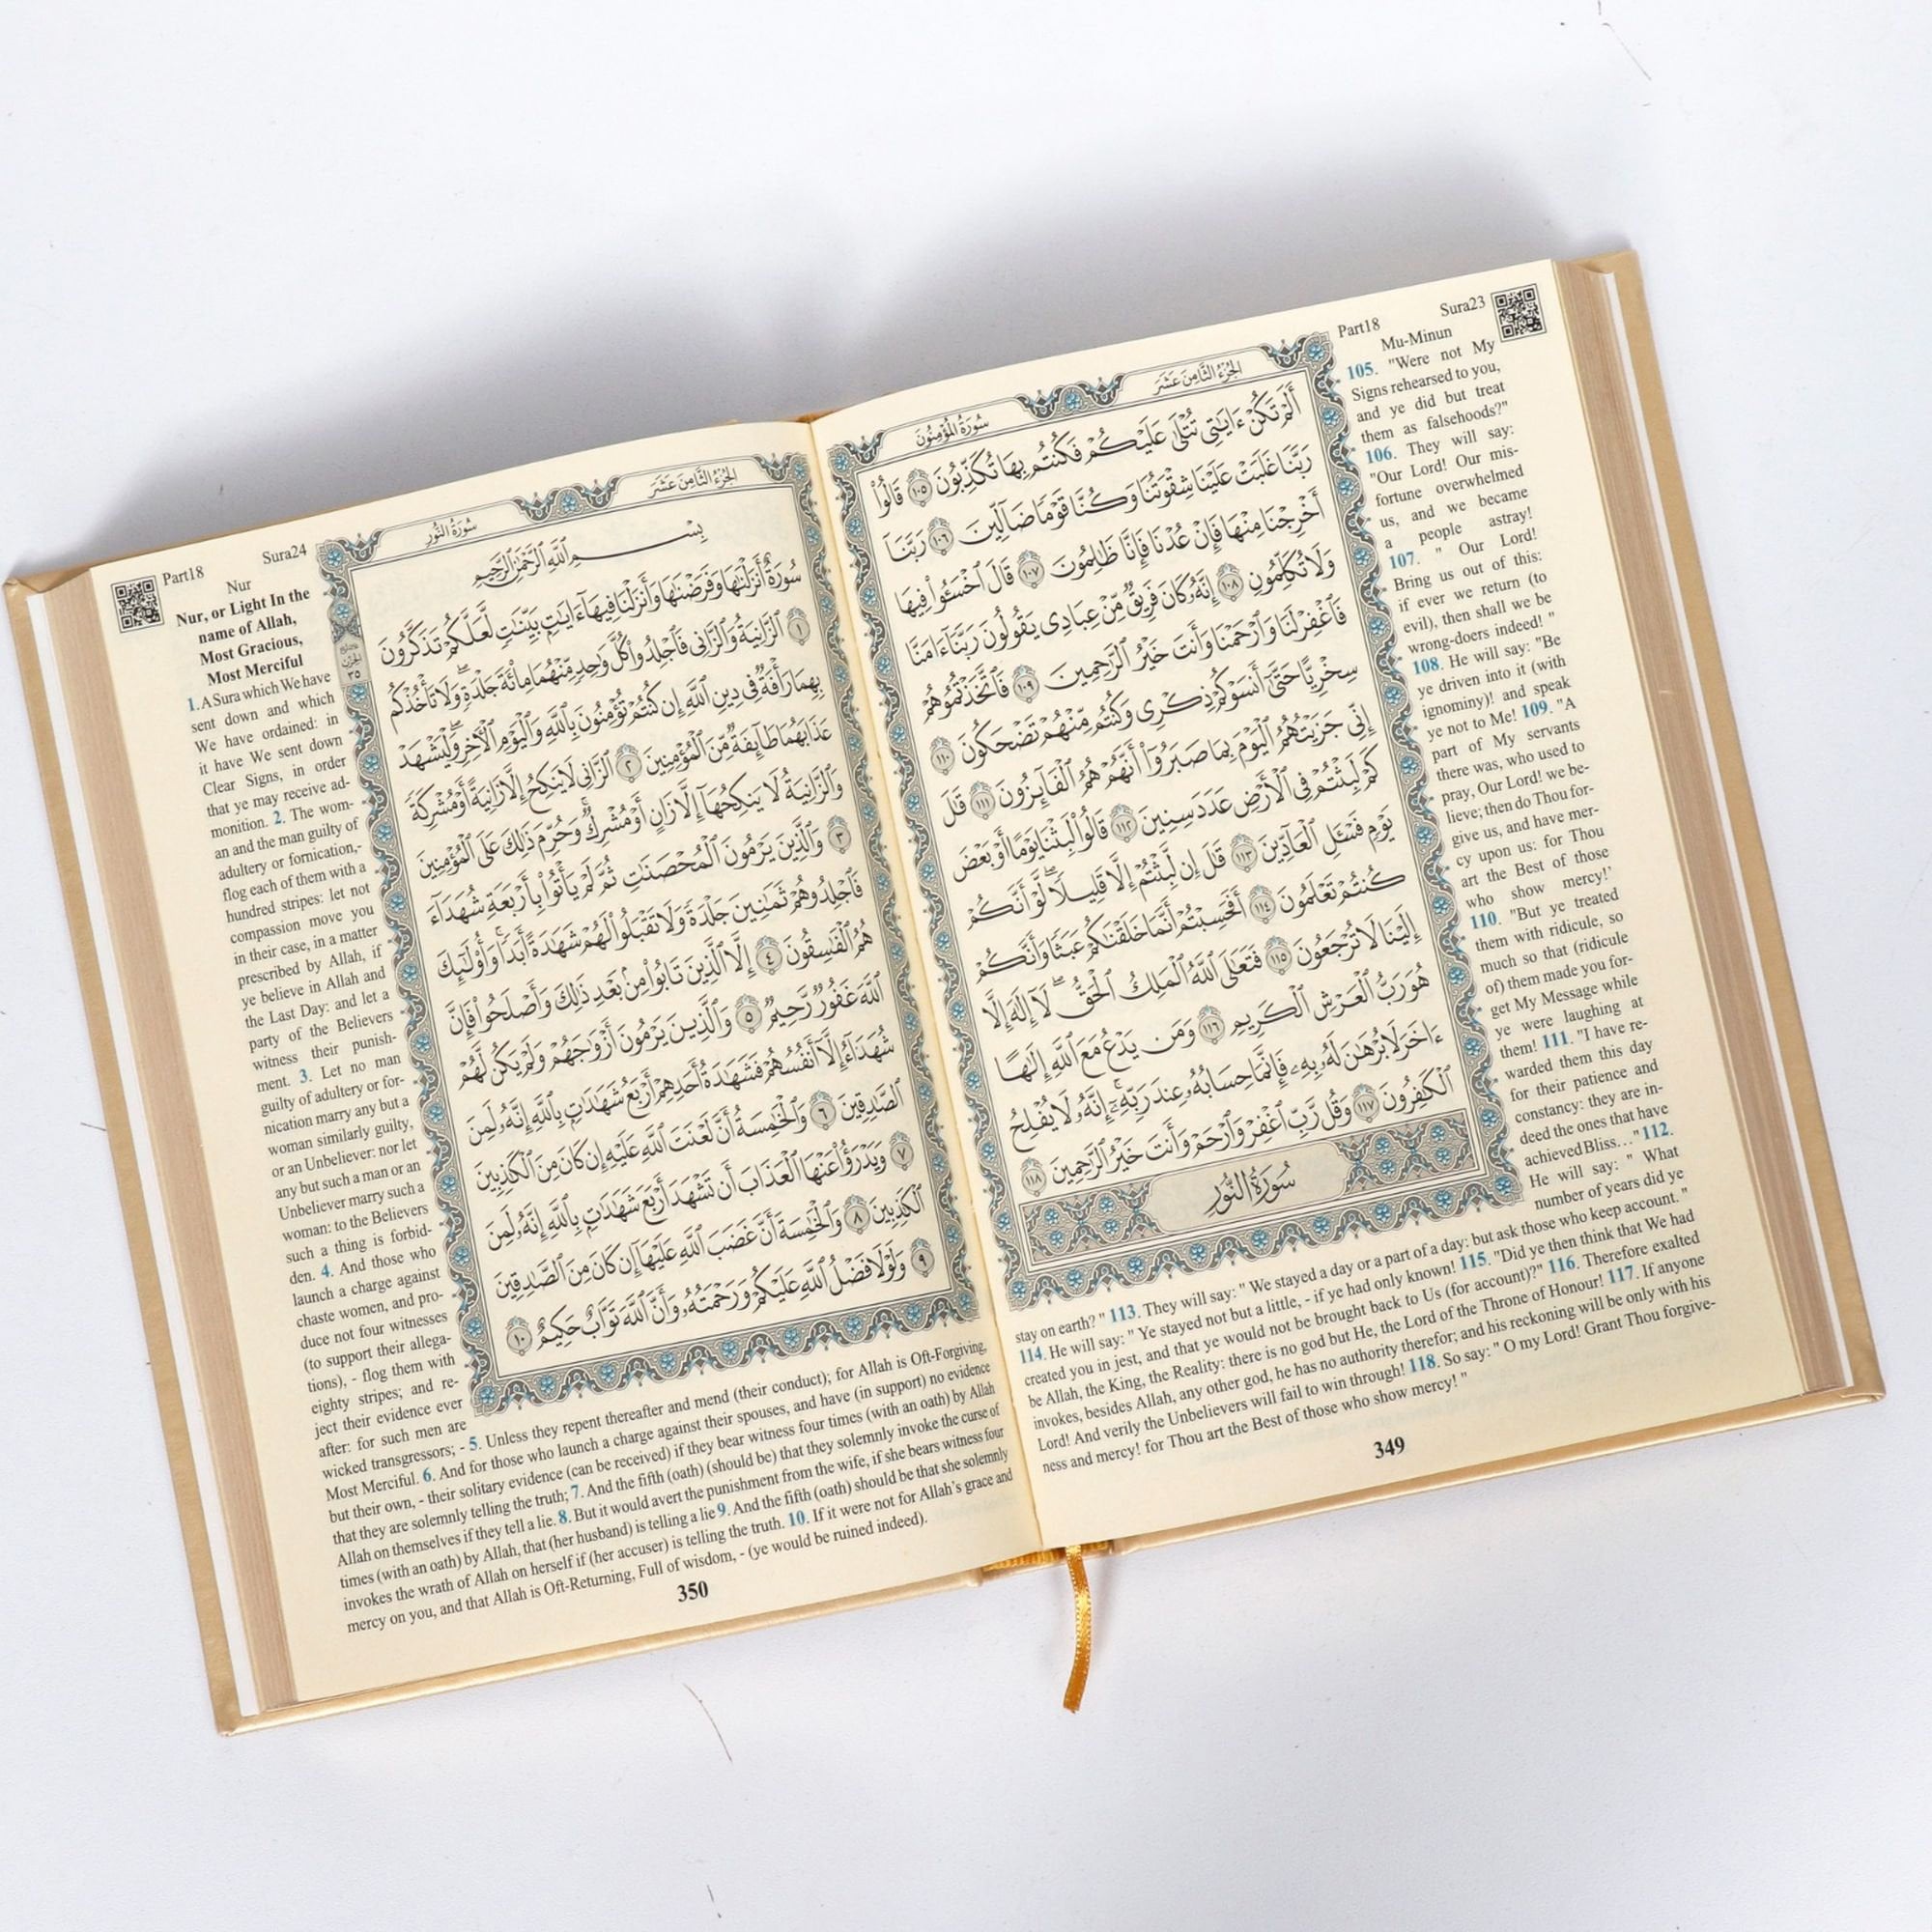 Part18
Sura23
Mu-Minun
الجُزْءُ الثَّامِنَ عَشَرَ
سُورَةُ المُؤْمِنُونَ
أَلَمْ تَكُنْ ءَايَٰتِى تُتْلَىٰ عَلَيْكُمْ فَكُنتُم بِهَا تُكَذِّبُونَ ١٠٥ قَالُوا۟
رَبَّنَا غَلَبَتْ عَلَيْنَا شِقْوَتُنَا وَكُنَّا قَوْمًا ضَآلِّينَ ١٠٦ رَبَّنَآ
أَخْرِجْنَا مِنْهَا فَإِنْ عُدْنَا فَإِنَّا ظَٰلِمُونَ ١٠٧ قَالَ ٱخْسَـُٔوا۟ فِيهَا
وَلَا تُكَلِّمُونِ ١٠٨ إِنَّهُۥ كَانَ فَرِيقٌ مِّنْ عِبَادِى يَقُولُونَ رَبَّنَآ ءَامَنَّا
فَٱغْفِرْ لَنَا وَٱرْحَمْنَا وَأَنتَ خَيْرُ ٱلرَّٰحِمِينَ ١٠٩ فَٱتَّخَذْتُمُوهُمْ
سِخْرِيًّا حَتَّىٰٓ أَنسَوْكُمْ ذِكْرِى وَكُنتُم مِّنْهُمْ تَضْحَكُونَ ١١٠
إِنِّى جَزَيْتُهُمُ ٱلْيَوْمَ بِمَا صَبَرُوٓا۟ أَنَّهُمْ هُمُ ٱلْفَآئِزُونَ ١١١ قَٰلَ
كَمْ لَبِثْتُمْ فِى ٱلْأَرْضِ عَدَدَ سِنِينَ ١١٢ قَالُوا۟ لَبِثْنَا يَوْمًا أَوْ بَعْضَ
يَوْمٍ فَسْـَٔلِ ٱلْعَآدِّينَ ١١٣ قَٰلَ إِن لَّبِثْتُمْ إِلَّا قَلِيلًا ۖ لَّوْ أَنَّكُمْ
كُنتُمْ تَعْلَمُونَ ١١٤ أَفَحَسِبْتُمْ أَنَّمَا خَلَقْنَٰكُمْ عَبَثًا وَأَنَّكُمْ
إِلَيْنَا لَا تُرْجَعُونَ ١١٥ فَتَعَٰلَى ٱللَّهُ ٱلْمَلِكُ ٱلْحَقُّ ۖ لَآ إِلَٰهَ إِلَّا
هُوَ رَبُّ ٱلْعَرْشِ ٱلْكَرِيمِ ١١٦ وَمَن يَدْعُ مَعَ ٱللَّهِ إِلَٰهًا
ءَاخَرَ لَا بُرْهَٰنَ لَهُۥ بِهِۦ فَإِنَّمَا حِسَابُهُۥ عِندَ رَبِّهِۦٓ ۚ إِنَّهُۥ لَا يُفْلِحُ
ٱلْكَٰفِرُونَ ١١٧ وَقُل رَّبِّ ٱغْفِرْ وَٱرْحَمْ وَأَنتَ خَيْرُ ٱلرَّٰحِمِينَ ١١٨
سُورَةُ النُّورِ
105. "Were not My
Signs rehearsed to you,
and ye did but treat
them as falsehoods?"
106. They will say:
"Our Lord! Our mis-
fortune overwhelmed
us, and we became
a people astray!
107. " Our Lord!
Bring us out of this:
if ever we return (to
evil), then shall we be
wrong-doers indeed! "
108. He will say: "Be
ye driven into it (with
ignominy)! and speak
ye not to Me! 109. "A
part of My servants
there was, who used to
pray, Our Lord! we be-
lieve; then do Thou for-
give us, and have mer-
cy upon us: for Thou
art the Best of those
who show mercy!'
110. "But ye treated
them with ridicule, so
much so that (ridicule
of) them made you for-
get My Message while
ye were laughing at
them! 111. "I have re-
warded them this day
for their patience and
constancy: they are in-
deed the ones that have
achieved Bliss..." 112.
He will say: " What
number of years did ye
stay on earth? " 113. They will say: " We stayed a day or a part of a day: but ask those who keep account. "
114. He will say: " Ye stayed not but a little, - if ye had only known! 115. "Did ye then think that We had
created you in jest, and that ye would not be brought back to Us (for account)?" 116. Therefore exalted
be Allah, the King, the Reality: there is no god but He, the Lord of the Throne of Honour! 117. If anyone
invokes, besides Allah, any other god, he has no authority therefor; and his reckoning will be only with his
Lord! And verily the Unbelievers will fail to win through! 118. So say: " O my Lord! Grant Thou forgive-
ness and mercy! for Thou art the Best of those who show mercy! "
349
Part18
Sura24
Nur
Nur, or Light In the
name of Allah,
Most Gracious,
Most Merciful
الجُزْءُ الثَّامِنَ عَشَرَ
سُورَةُ النُّورِ
بِسْمِ ٱللَّهِ ٱلرَّحْمَٰنِ ٱلرَّحِيمِ
سُورَةٌ أَنزَلْنَٰهَا وَفَرَضْنَٰهَا وَأَنزَلْنَا فِيهَآ ءَايَٰتٍۭ بَيِّنَٰتٍ لَّعَلَّكُمْ تَذَكَّرُونَ
١ ٱلزَّانِيَةُ وَٱلزَّانِى فَٱجْلِدُوا۟ كُلَّ وَٰحِدٍ مِّنْهُمَا مِا۟ئَةَ جَلْدَةٍ ۖ وَلَا تَأْخُذْكُم
بِهِمَا رَأْفَةٌ فِى دِينِ ٱللَّهِ إِن كُنتُمْ تُؤْمِنُونَ بِٱللَّهِ وَٱلْيَوْمِ ٱلْءَاخِرِ ۖ وَلْيَشْهَدْ
عَذَابَهُمَا طَآئِفَةٌ مِّنَ ٱلْمُؤْمِنِينَ ٢ ٱلزَّانِى لَا يَنكِحُ إِلَّا زَانِيَةً أَوْ مُشْرِكَةً
وَٱلزَّانِيَةُ لَا يَنكِحُهَآ إِلَّا زَانٍ أَوْ مُشْرِكٌ ۚ وَحُرِّمَ ذَٰلِكَ عَلَى ٱلْمُؤْمِنِينَ
٣ وَٱلَّذِينَ يَرْمُونَ ٱلْمُحْصَنَٰتِ ثُمَّ لَمْ يَأْتُوا۟ بِأَرْبَعَةِ شُهَدَآءَ
فَٱجْلِدُوهُمْ ثَمَٰنِينَ جَلْدَةً وَلَا تَقْبَلُوا۟ لَهُمْ شَهَٰدَةً أَبَدًا ۚ وَأُو۟لَٰٓئِكَ
هُمُ ٱلْفَٰسِقُونَ ٤ إِلَّا ٱلَّذِينَ تَابُوا۟ مِنۢ بَعْدِ ذَٰلِكَ وَأَصْلَحُوا۟ فَإِنَّ
ٱللَّهَ غَفُورٌ رَّحِيمٌ ٥ وَٱلَّذِينَ يَرْمُونَ أَزْوَٰجَهُمْ وَلَمْ يَكُن لَّهُمْ
شُهَدَآءُ إِلَّآ أَنفُسُهُمْ فَشَهَٰدَةُ أَحَدِهِمْ أَرْبَعُ شَهَٰدَٰتٍۭ بِٱللَّهِ إِنَّهُۥ لَمِنَ
ٱلصَّٰدِقِينَ ٦ وَٱلْخَٰمِسَةُ أَنَّ لَعْنَتَ ٱللَّهِ عَلَيْهِ إِن كَانَ مِنَ ٱلْكَٰذِبِينَ
٧ وَيَدْرَؤُا۟ عَنْهَا ٱلْعَذَابَ أَن تَشْهَدَ أَرْبَعَ شَهَٰدَٰتٍۭ بِٱللَّهِ إِنَّهُۥ لَمِنَ
ٱلْكَٰذِبِينَ ٨ وَٱلْخَٰمِسَةَ أَنَّ غَضَبَ ٱللَّهِ عَلَيْهَآ إِن كَانَ مِنَ ٱلصَّٰدِقِينَ
٩ وَلَوْلَا فَضْلُ ٱللَّهِ عَلَيْكُمْ وَرَحْمَتُهُۥ وَأَنَّ ٱللَّهَ تَوَّابٌ حَكِيمٌ ١٠
1. A Sura which We have
sent down and which
We have ordained: in
it have We sent down
Clear Signs, in order
that ye may receive ad-
monition. 2. The wom-
an and the man guilty of
adultery or fornication,-
flog each of them with a
hundred stripes: let not
compassion move you
in their case, in a matter
prescribed by Allah, if
ye believe in Allah and
the Last Day: and let a
party of the Believers
witness their punish-
ment. 3. Let no man
guilty of adultery or for-
nication marry any but a
woman similarly guilty,
or an Unbeliever: nor let
any but such a man or an
Unbeliever marry such a
woman: to the Believers
such a thing is forbid-
den. 4. And those who
launch a charge against
chaste women, and pro-
duce not four witnesses
(to support their allega-
tions), - flog them with
eighty stripes; and re-
ject their evidence ever
after: for such men are
wicked transgressors; - 5. Unless they repent thereafter and mend (their conduct); for Allah is Oft-Forgiving,
Most Merciful. 6. And for those who launch a charge against their spouses, and have (in support) no evidence
but their own, - their solitary evidence (can be received) if they bear witness four times (with an oath) by Allah
that they are solemnly telling the truth; 7. And the fifth (oath) (should be) that they solemnly invoke the curse of
Allah on themselves if they tell a lie. 8. But it would avert the punishment from the wife, if she bears witness four
times (with an oath) by Allah, that (her husband) is telling a lie 9. And the fifth (oath) should be that she solemnly
invokes the wrath of Allah on herself if (her accuser) is telling the truth. 10. If it were not for Allah's grace and
mercy on you, and that Allah is Oft-Returning, Full of wisdom, - (ye would be ruined indeed).
350